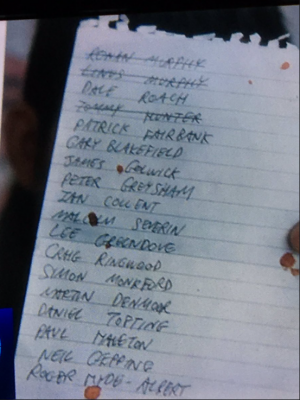 RONAN MURPHY
LINUS MURPHY
DALE ROACH
TOMMY HUNTER
PATRICK FAIRBANK
GARY BLAKEFIELD
JAMES
PETER GREYSHAM
IAN COLLENT
MALCOLM SEVERIN
LEE GREENDOVE
CRAIG RINGWOOD
SIMON MONKFORD
MARTIN DENMOOR
DANIEL TOPTING
PAUL
NEIL GEPPING
ROGER HYDE-ALBERT